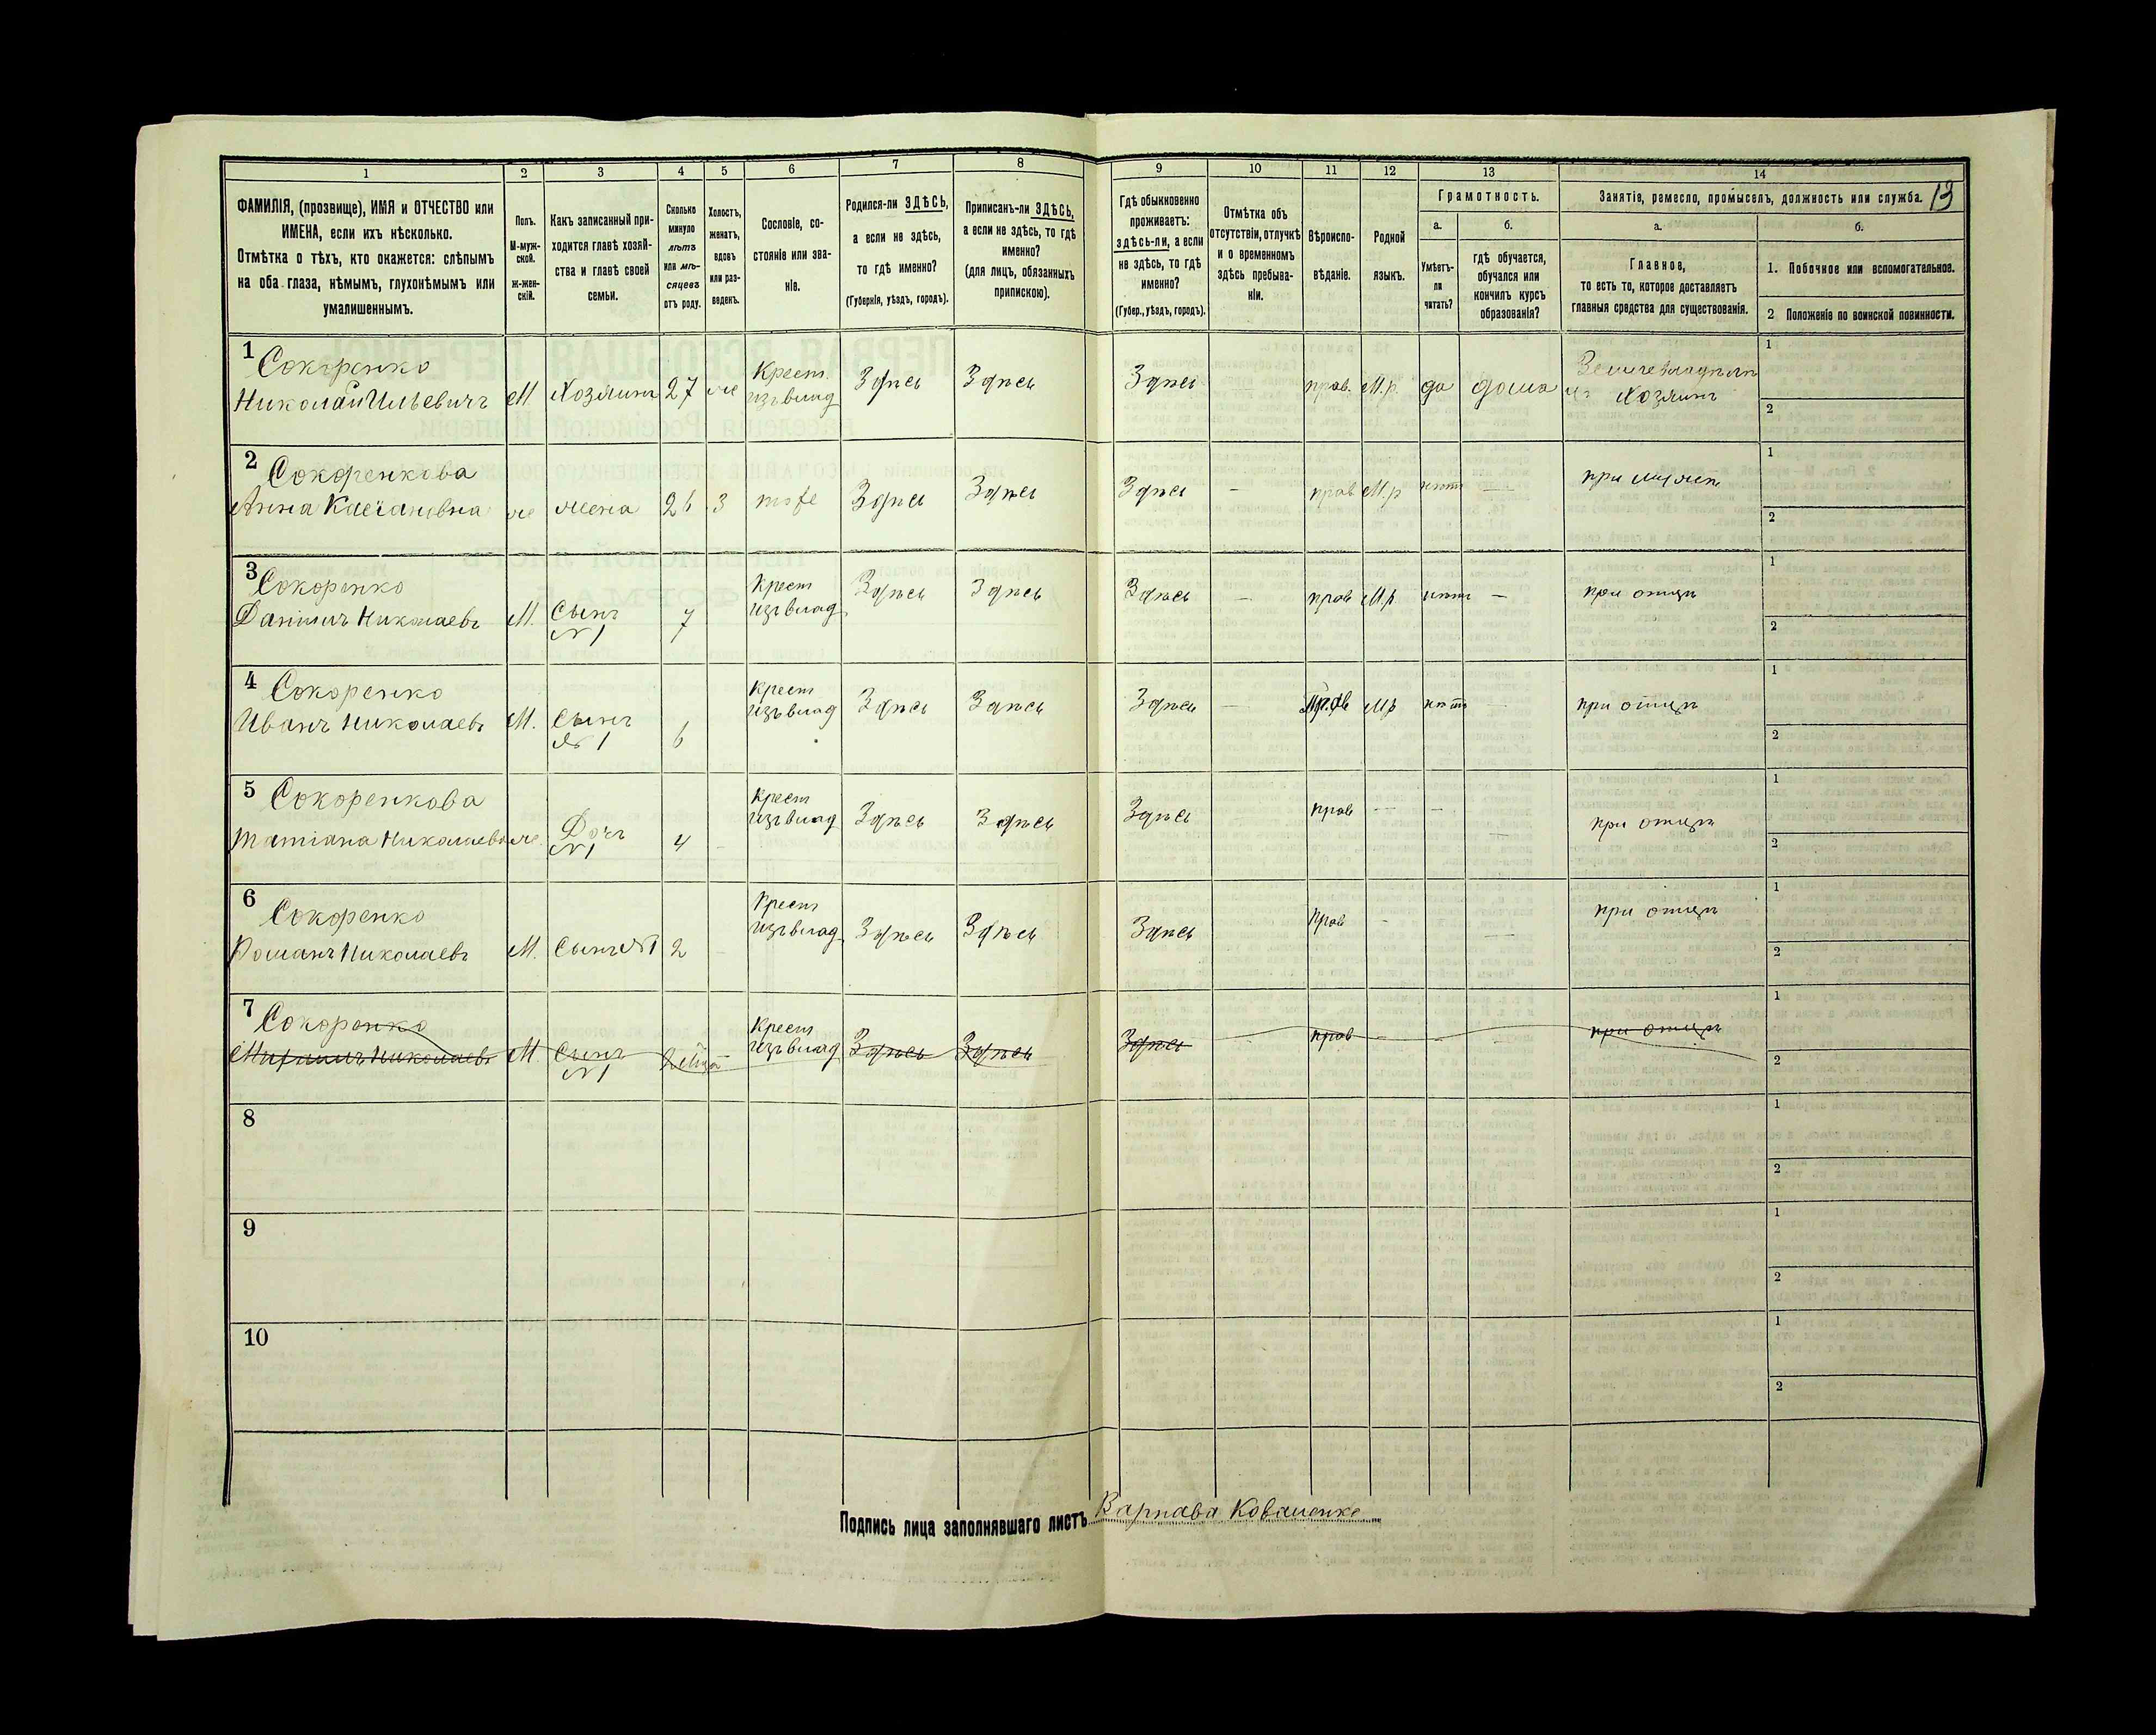 1 2 3 4 5 6 7 8 9 10 11 12 13 14
ФАМИЛІЯ, (прозвище), ИМЯ и ОТЧЕСТВО или
ИМЕНА, если ихъ нѣсколько.
Отмѣтка о тѣхъ, кто окажется: слѣпымъ
на оба глаза, нѣмымъ, глухонѣмымъ или
умалишеннымъ.
Полъ.
М-муж-
ской.
ж-жен-
скій.
Какъ записанный при-
ходится главѣ хозяй-
ства и главѣ своей
семьи.
Сколько
минуло
лѣтъ
или мѣ-
сяцевъ
отъ роду.
Холостъ,
женатъ,
вдовъ
или раз-
веденъ.
Сословіе, со-
стояніе или зва-
ніе.
Родился-ли ЗДѢСЬ,
а если не здѣсь,
то гдѣ именно?
(Губернія, уѣздъ, городъ).
Приписанъ-ли ЗДѢСЬ,
а если не здѣсь, то гдѣ
именно?
(для лицъ, обязанныхъ
припискою).
Гдѣ обыкновенно
проживаетъ:
здѣсь-ли, а если
не здѣсь, то гдѣ
именно?
(Губер., уѣздъ, городъ).
Отмѣтка объ
отсутствіи, отлучкѣ
и о временномъ
здѣсь пребыва-
ніи.
Вѣроиспо-
вѣданіе.
Родной
языкъ.
Грамотность.
а.
Умѣетъ-
ли
читать?
б.
гдѣ обучается,
обучался или
кончилъ курсъ
образованія?
Занятіе, ремесло, промыселъ, должность или служба. 13
а.
Главное,
то есть то, которое доставляетъ
главныя средства для существованія.
б.
1. Побочное или вспомогательное.
2 Положеніе по воинской повинности.
1 Сокоренко Крест. 1
Николай Ильевичъ М Хозяинъ 27 же изъ влад Здѣсь Здѣсь Здѣсь — прав. М.р. да дома Хозяинъ
2
2 Сокоренкова 1
Анна же жена 26 з тоже Здѣсь Здѣсь Здѣсь — прав М.р нѣтъ — при мужѣ
2
3 Сокоренко Крест 1
Даніилъ Николаевъ М. Сынъ №1 7 изъ влад Здѣсь Здѣсь Здѣсь — прав М.р. нѣтъ — при отцѣ
2
4 Сокоренко Крест 1
Иванъ Николаевъ М. Сынъ №1 6 изъ влад Здѣсь Здѣсь Здѣсь — прав М.р нѣтъ — при отцѣ
2
5 Сокоренкова Крест 1
Татіана Николаева же Дочь №1 4 изъ влад Здѣсь Здѣсь Здѣсь прав — — — при отцѣ
2
6 Сокоренко Крест 1
Романъ Николаевъ М. Сынъ №1 2 изъ влад Здѣсь Здѣсь Здѣсь прав - — при отцѣ
2
7 Сокоренко Крест 1
Николаевъ М. Сынъ №1 изъ влад Здѣсь Здѣсь Здѣсь прав - при отцѣ
2
8 1
2
9 1
2
10 1
2
Подпись лица заполнявшаго листъ Варнава Коваленко